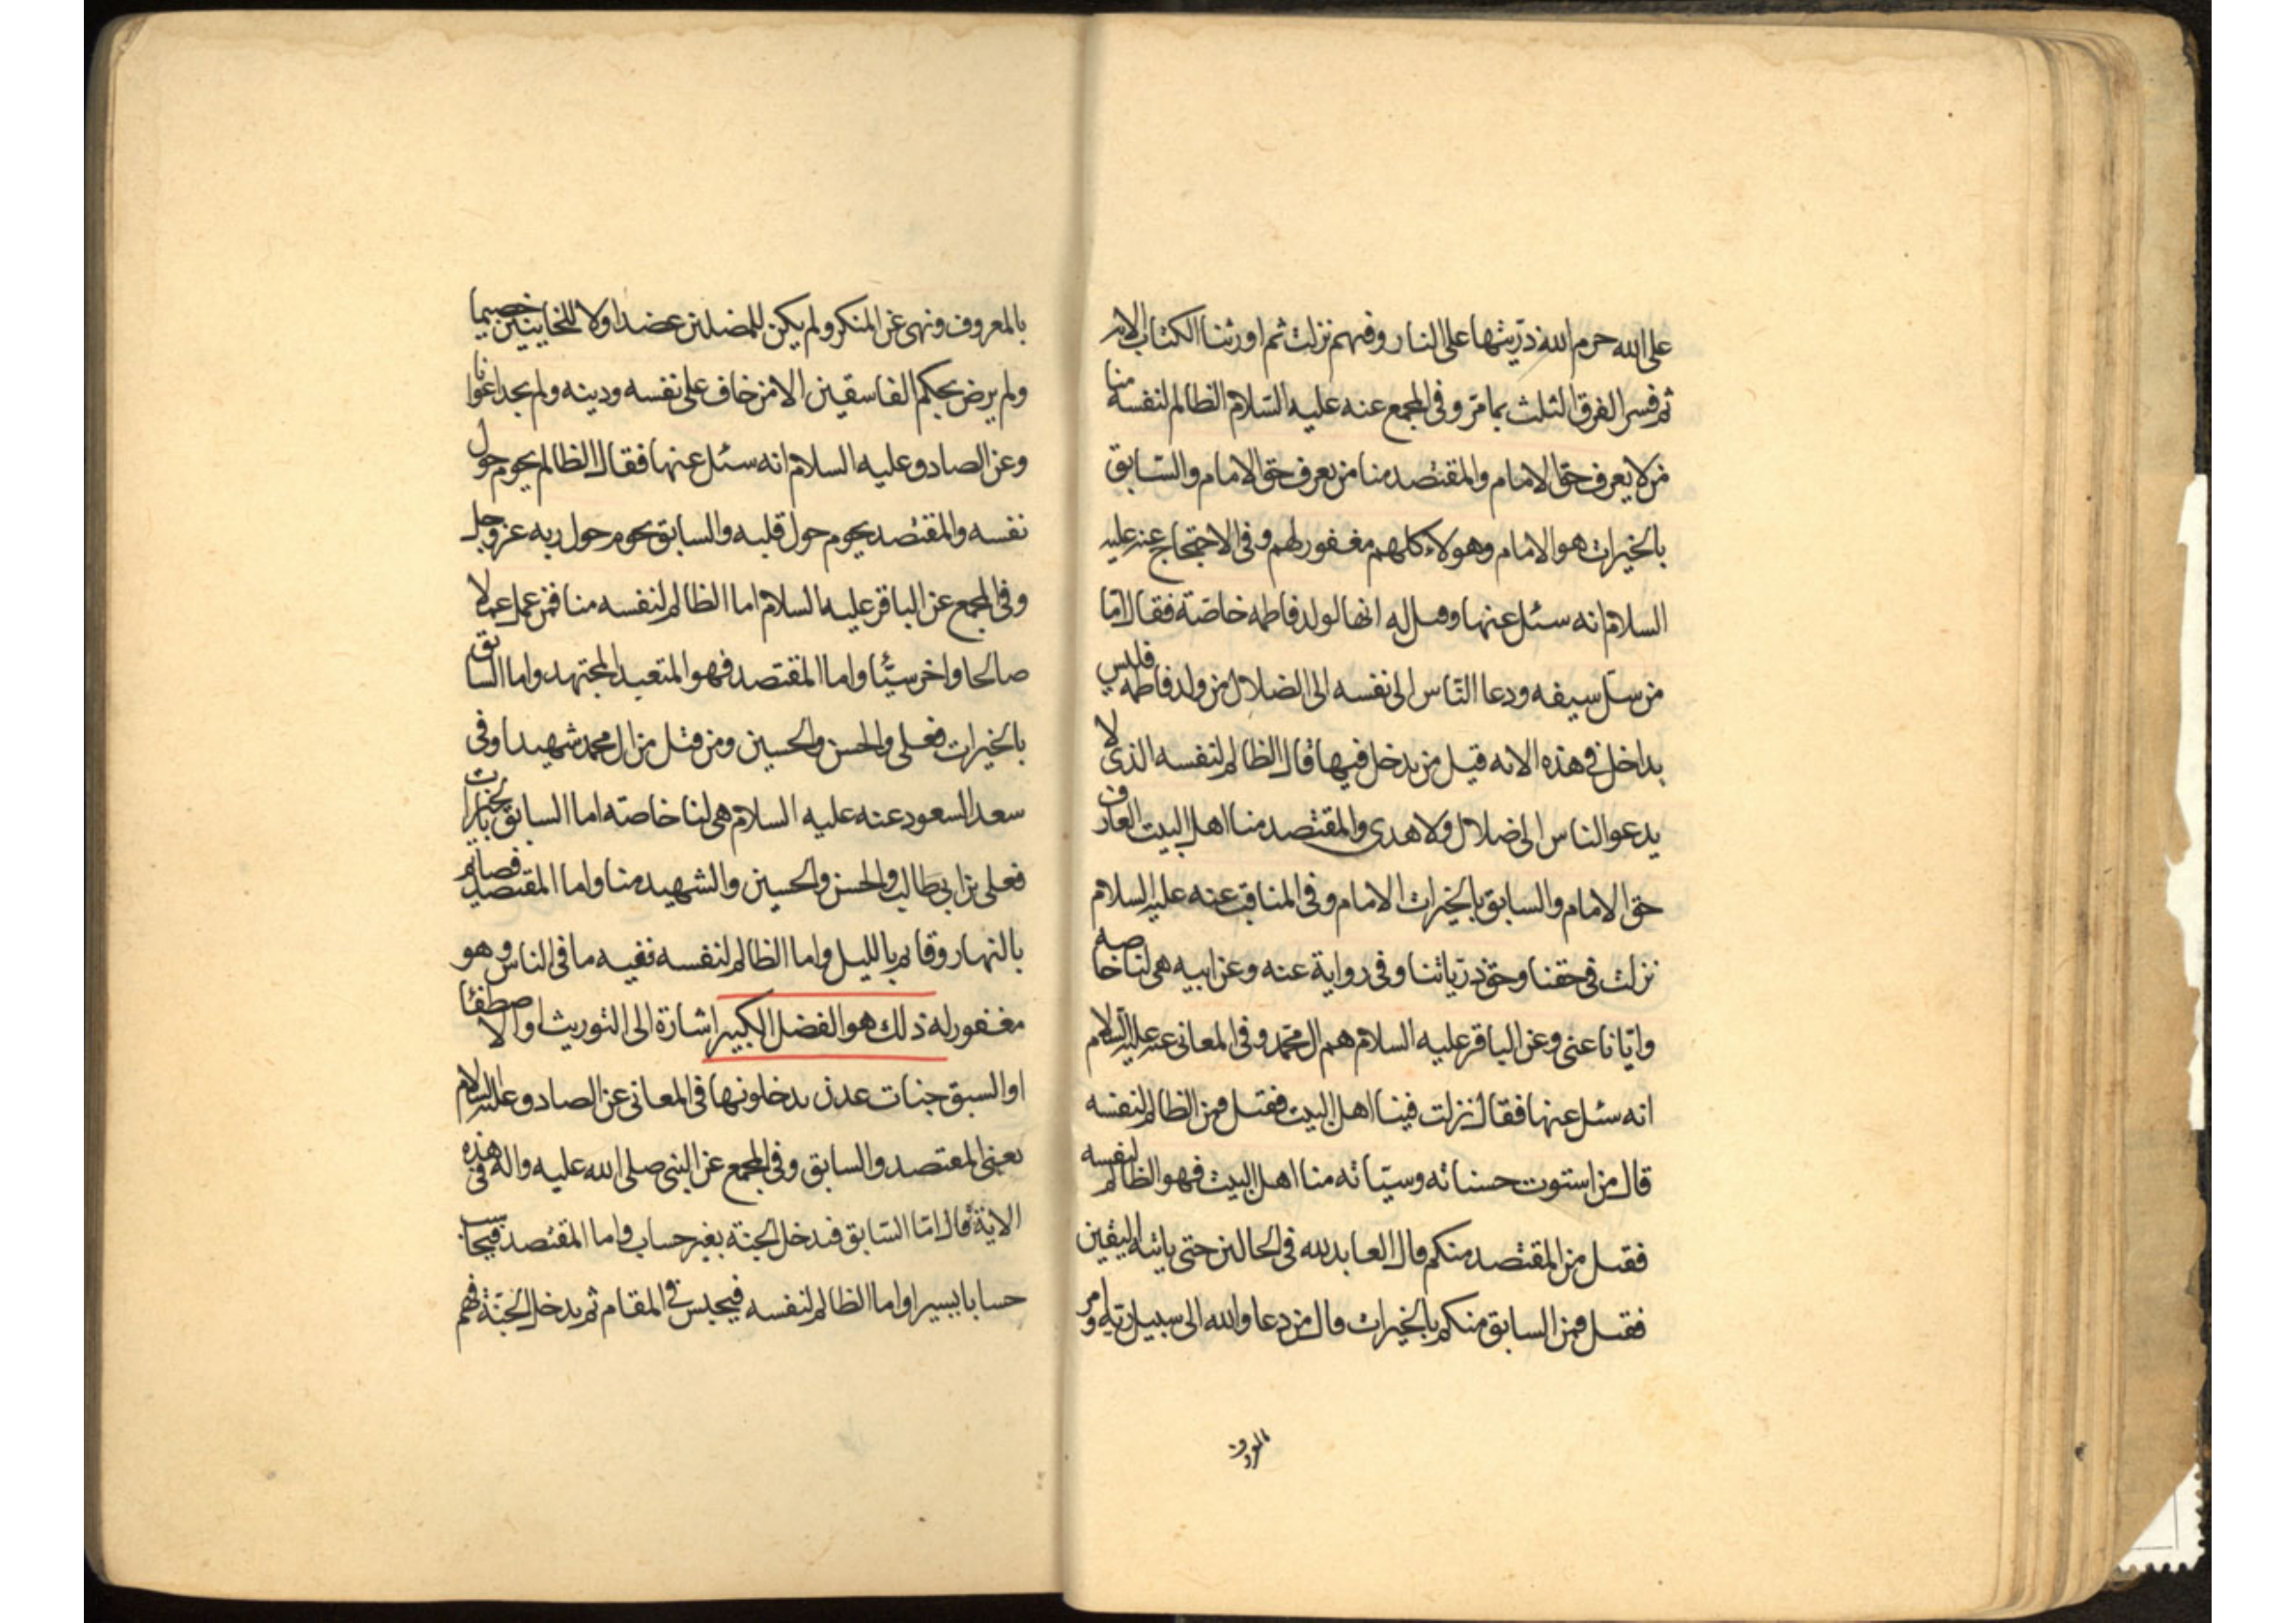 على الله حرم الله ذريتها على النار وفيهم نزلت ثم اورثنا الكتاب الايه
ثم فسر الفرق الثلث بما مر وفى المجمع عنه عليه السلام الظالم لنفسه منا
من لا يعرف حق الامام والمقتصد منا من يعرف حق الامام والسابق
بالخيرات هو الامام وهولاء كلهم مغفور لهم وفى الاحتجاج عنه عليه
السلام انه سئل عنها وقيل له انها لولد فاطمه خاصة فقال اما
من سل سيفه ودعا الناس الى نفسه الى الضلال من ولد فاطمه فليس
بداخل فى هذه الايه قيل من يدخل فيها قال الظالم لنفسه الذى لا
يدعو الناس الى ضلال ولا هدى والمقتصد منا اهل البيت العارف
حق الامام والسابق بالخيرات الامام وفى المناقب عنه عليه السلام
نزلت فى حقنا وحق ذرياتنا وفى رواية عنه وعن ابيه هى لنا خاصه
وايانا عنى وعن الباقر عليه السلام هم ال محمد وفى المعانى عنه عليه السلام
انه سئل عنها فقال نزلت فينا اهل البيت فقيل فمن الظالم لنفسه
قال من استوت حسناته وسيئاته منا اهل البيت فهو الظالم لنفسه
فقيل من المقتصد منكم قال العابد لله فى الحالين حتى ياتيه اليقين
فقيل فمن السابق منكم بالخيرات قال من دعا والله الى سبيل ربه وامر
بالمعروف
بالمعروف ونهى عن المنكر ولم يكن للمضلين عضدا ولا للخاينين خصيما
ولم يرض بحكم الفاسقين الا من خاف على نفسه ودينه ولم يجد اعوانا
وعن الصادق عليه السلام انه سئل عنها فقال الظالم يحوم حول
نفسه والمقتصد يحوم حول قلبه والسابق يحوم حول ربه عز وجل
وفى المجمع عن الباقر عليه السلام اما الظالم لنفسه منا فمن عمل عملا
صالحا واخر سيئا واما المقتصد فهو المتعبد المجتهد واما السابق
بالخيرات فعلى والحسن والحسين ومن قتل من ال محمد شهيدا وفى
سعد السعود عنه عليه السلام هى لنا خاصته اما السابق بالخيرات
فعلى بن ابى طالب والحسن والحسين والشهيد منا واما المقتصد فصائم
بالنهار وقائم بالليل واما الظالم لنفسه ففيه ما فى الناس وهو
مغفور له ذلك هو الفضل الكبير اشارة الى التوريث او الاصطفا
او السبق جنات عدن يدخلونها فى المعانى عن الصادق عليه السلام
يعنى المقتصد والسابق وفى المجمع عن النبى صلى الله عليه واله فى هذه
الاية قال اما السابق فيدخل الجنة بغير حساب واما المقتصد فيحاسب
حسابا يسيرا واما الظالم لنفسه فيحبس فى المقام ثم يدخل الجنة فهم